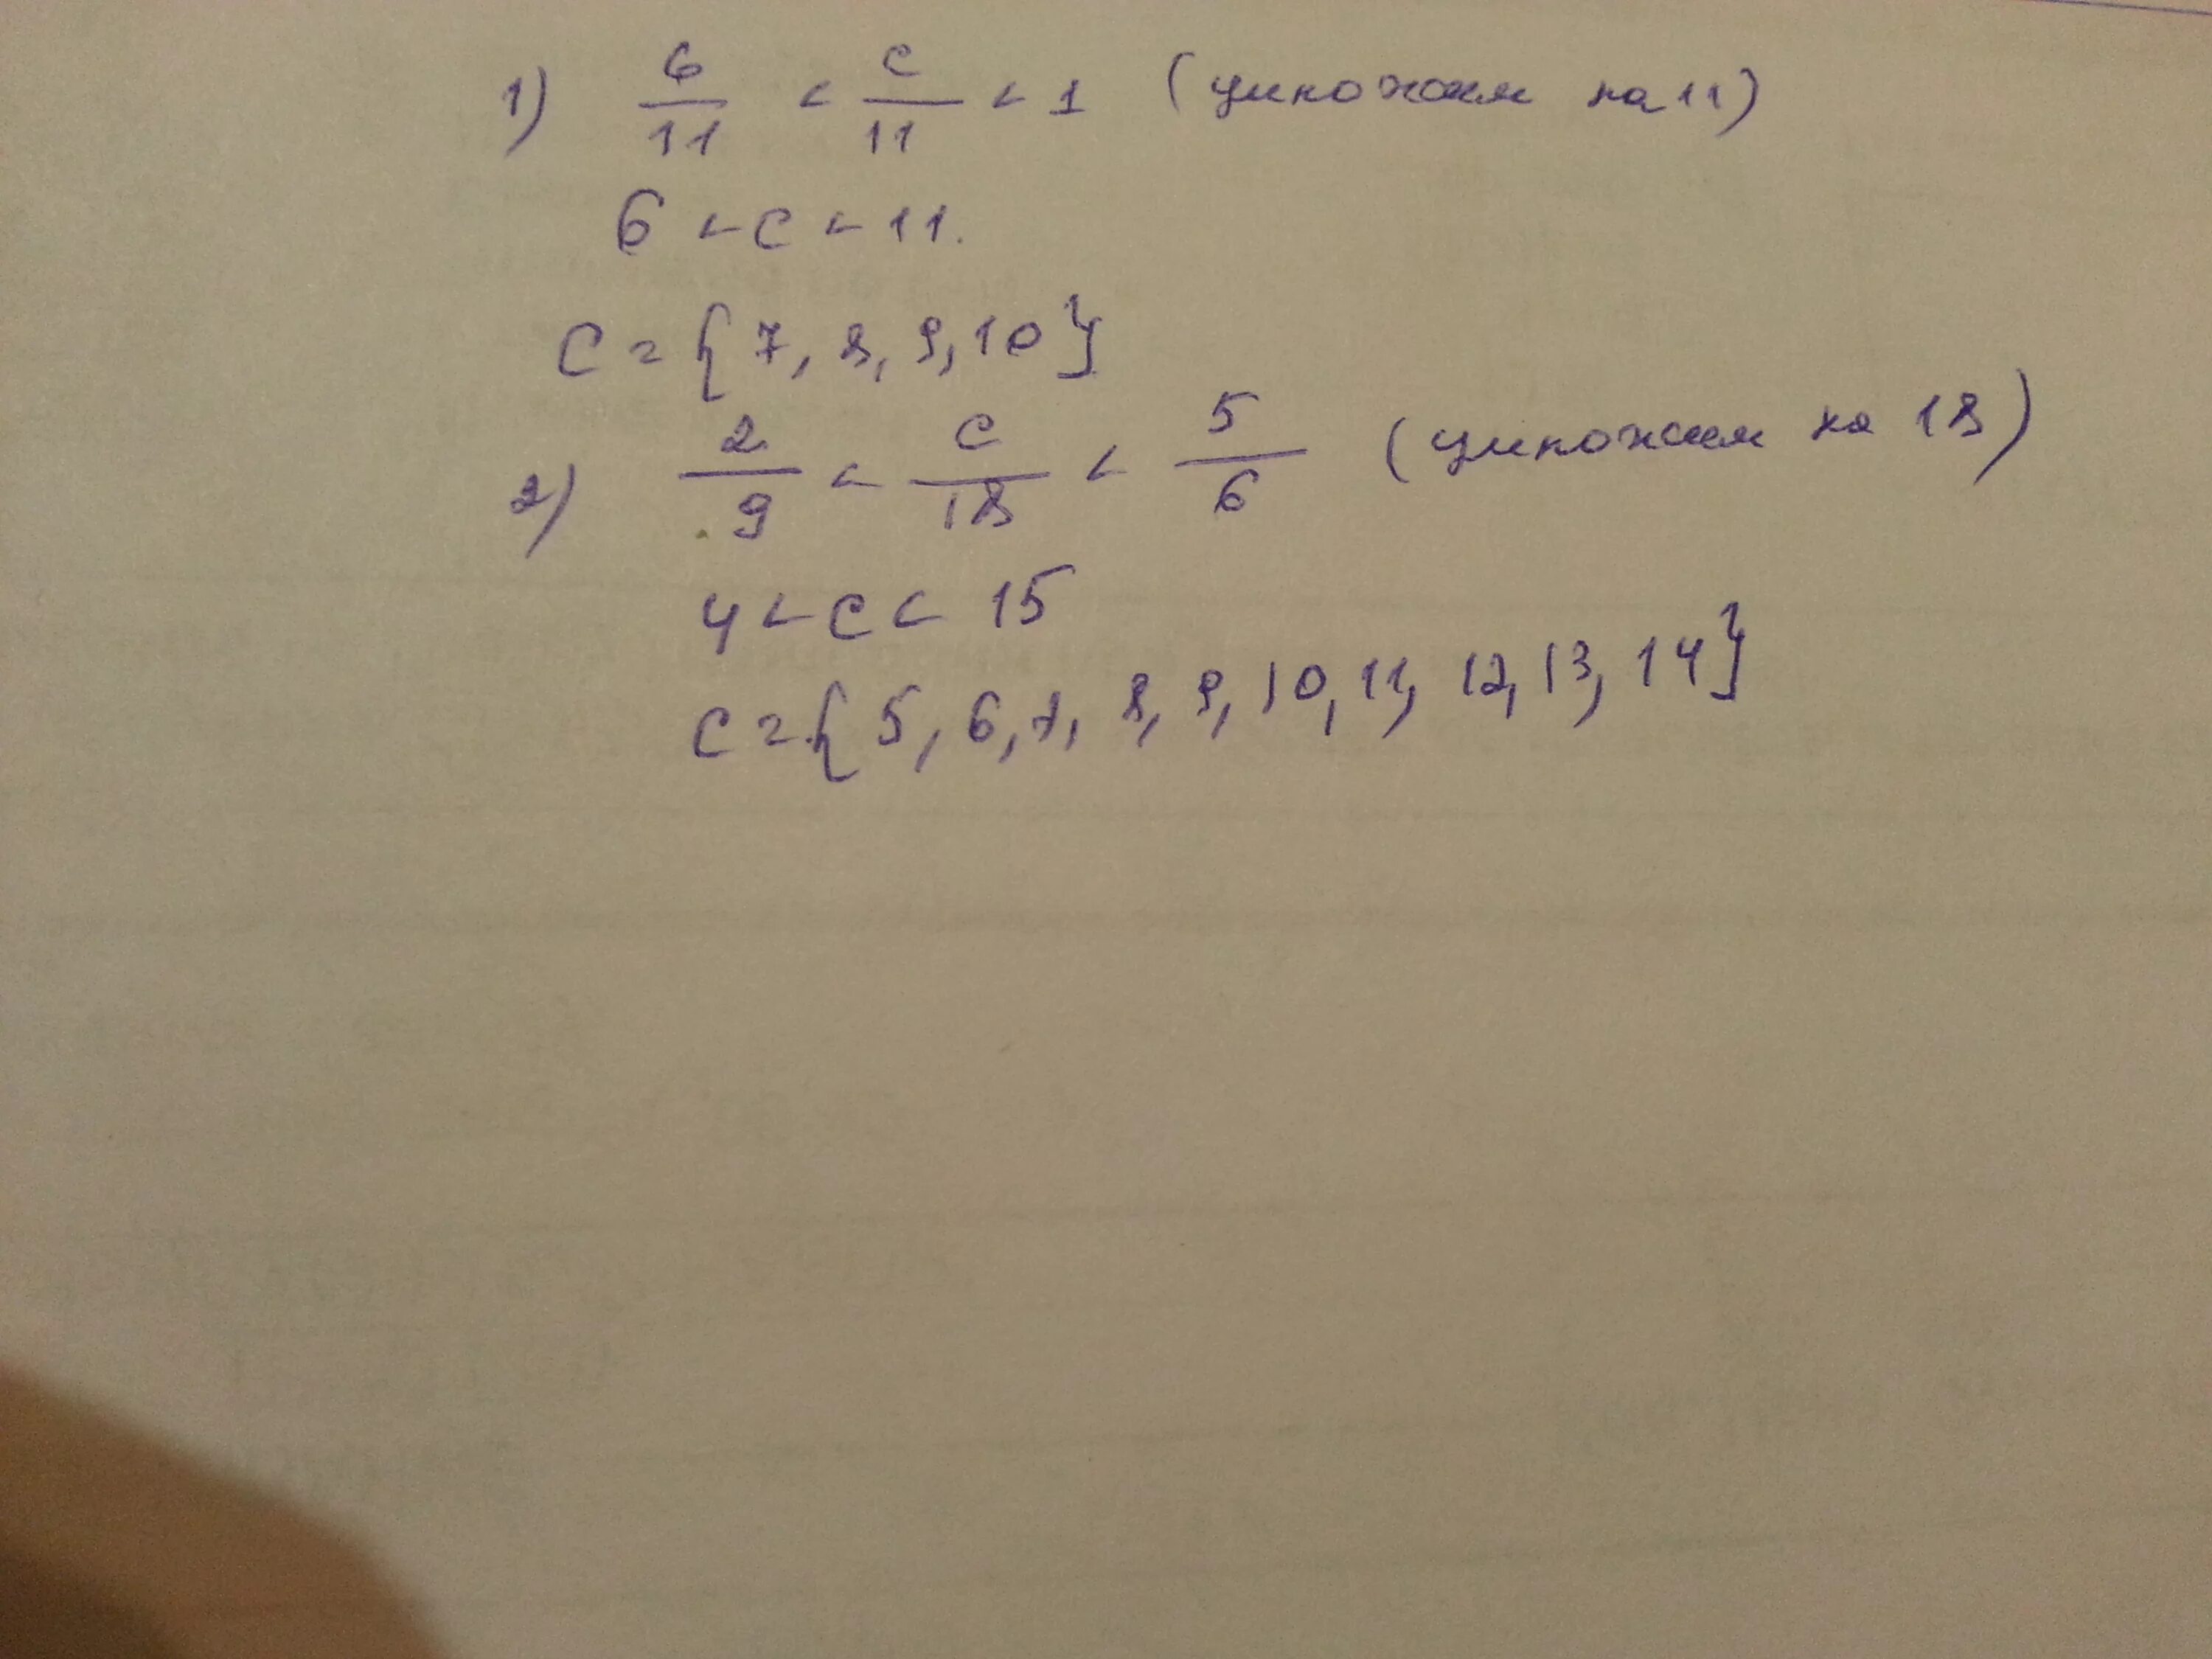 1) 6/11 < c/11 < 1 (умножим на 11)
6 < c < 11.
C = {7, 8, 9, 10}
2) 2/9 < c/18 < 5/6 (умножим на 18)
4 < c < 15
c = {5, 6, 7, 8, 9, 10, 11, 12, 13, 14}